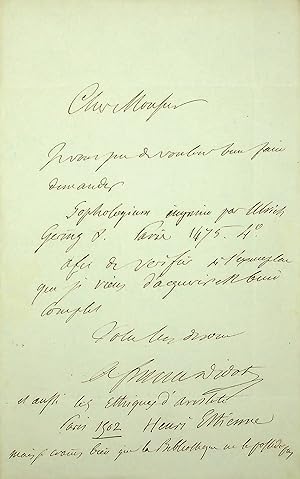 Cher Monsieur
Je vous prie de vouloir bien faire
demander
Sophologium imprimé par Ulrich
Gering &. Paris 1475 4°
afin de verifier si l'exemplaire
que je viens d'acquerir est bien
complet
Votre bien devoué
A Firmin Didot
et aussi les Ethiques d'Aristote
Paris 1502 Henri Estienne
mais je crains bien que la Bibliotheque ne le possede pas